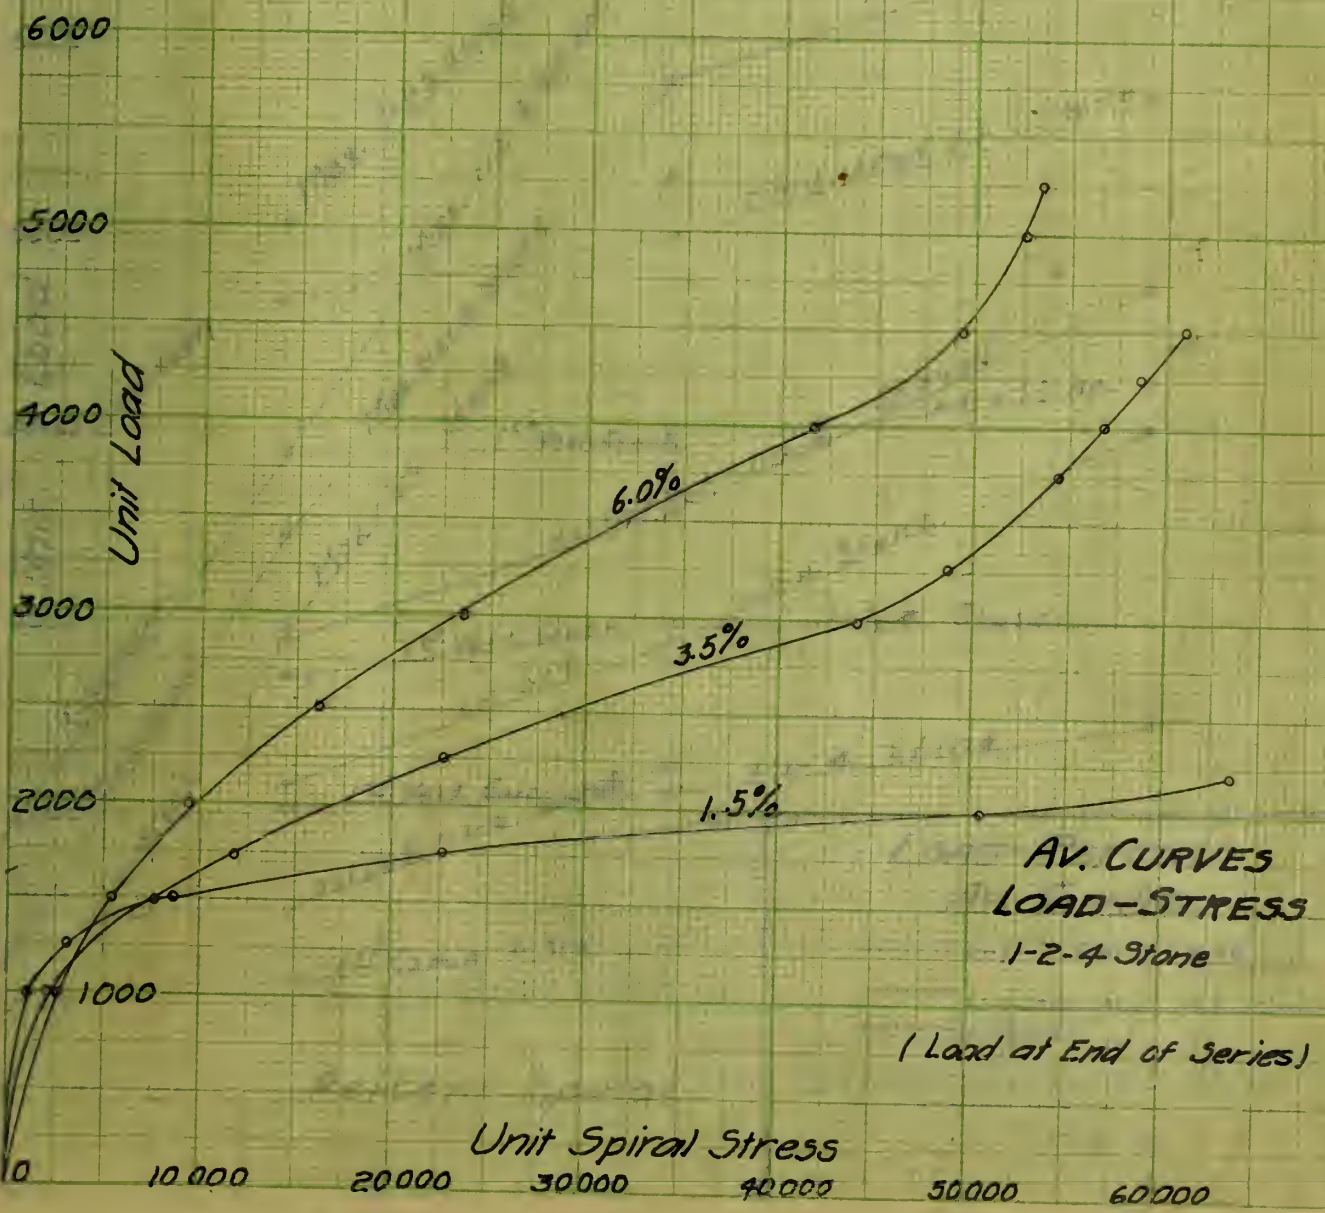 6000
5000
4000
3000
2000
1000
Unit Load
6.0%
3.5%
1.5%
AV. CURVES
LOAD-STRESS
1-2-4 Stone
(Load at End of Series)
Unit Spiral Stress
0 10000 20000 30000 40000 50000 60000